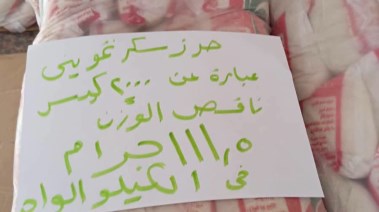 حرز سكر تمويني
عبارة عن ٢٠٠٠ كيس
ناقص الوزن
١١١,٥ جرام
فى الكيلو الواحد